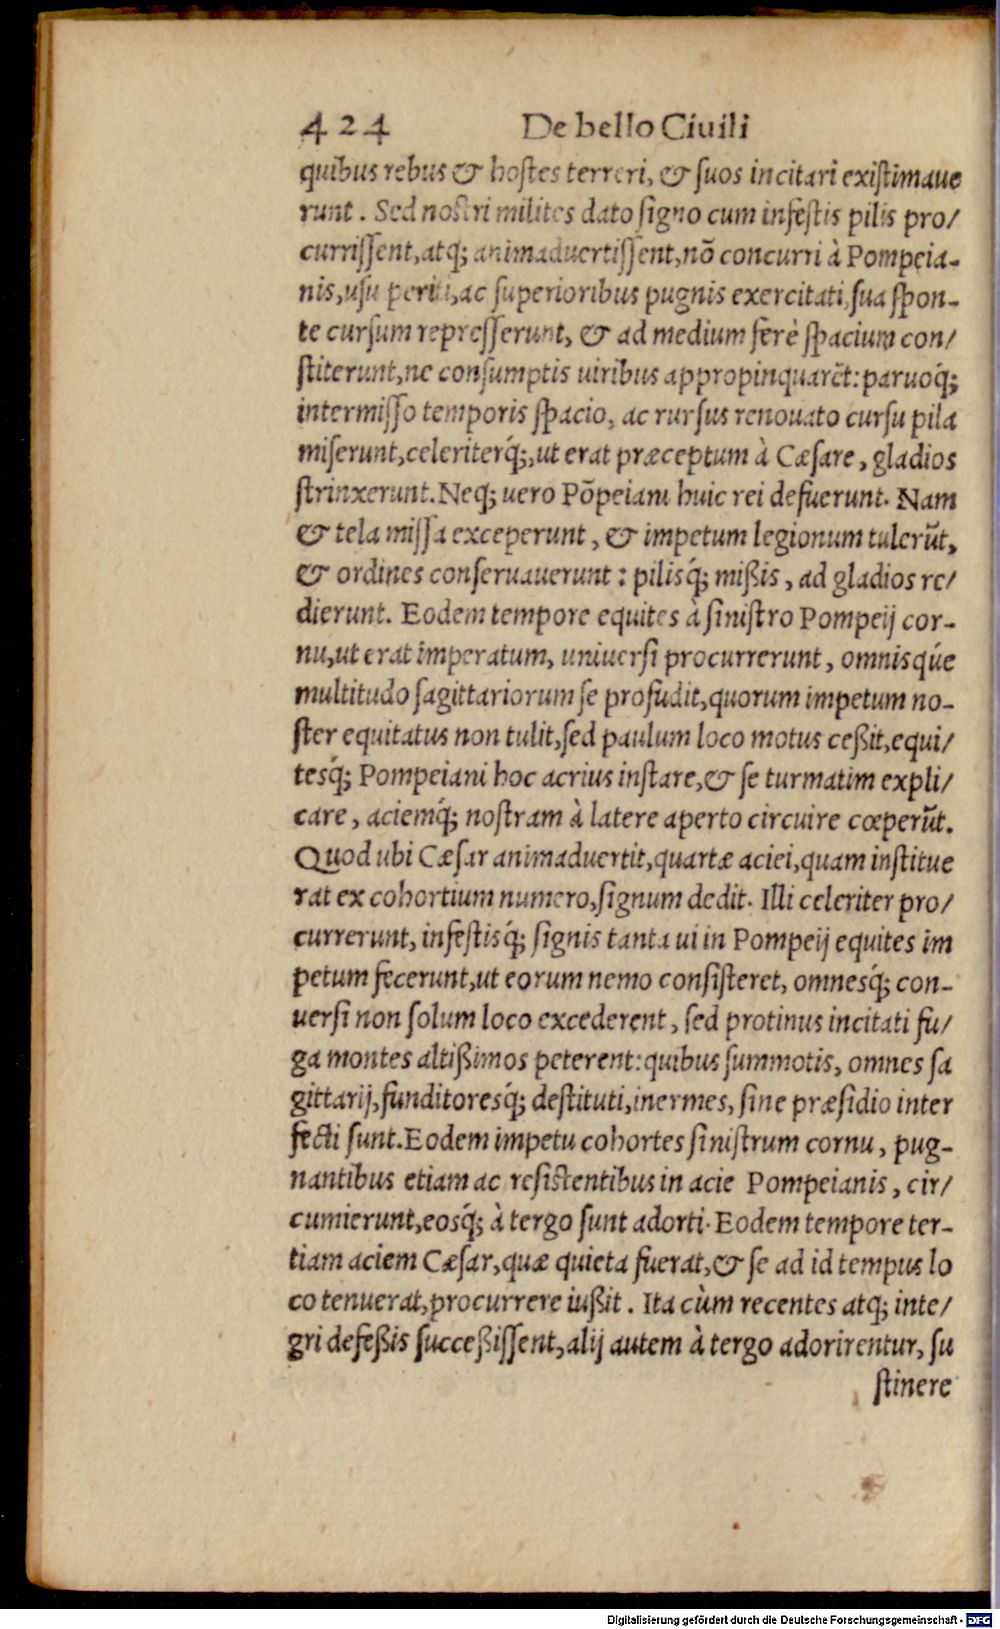 424 De bello Ciuili
quibus rebus & hostes terreri, & suos incitari existimaue
runt. Sed nostri milites dato signo cum infestis pilis pro/
currissent, atq; animaduertissent, nõ concurri à Pompeia-
nis, usu periti, ac superioribus pugnis exercitati, sua spon-
te cursum represserunt, & ad medium ferè spacium con/
stiterunt, ne consumptis uiribus appropinquarẽt: paruoq́;
intermisso temporis spacio, ac rursus renouato cursu pila
miserunt, celeriterq́;, ut erat præceptum à Cæsare, gladios
strinxerunt. Neq; uero Põpeiani huic rei defuerunt. Nam
& tela missa exceperunt, & impetum legionum tulerũt,
& ordines conseruauerunt: pilisq́; mißis, ad gladios re/
dierunt. Eodem tempore equites à sinistro Pompeij cor-
nu, ut erat imperatum, uniuersi procurrerunt, omnisq́ue
multitudo sagittariorum se profudit, quorum impetum no-
ster equitatus non tulit, sed paulum loco motus ceßit, equi/
tesq́; Pompeiani hoc acrius instare, & se turmatim expli/
care, aciemq́; nostram à latere aperto circuire cœperũt.
Quod ubi Cæsar animaduertit, quartæ aciei, quam institue
rat ex cohortium numero, signum dedit. Illi celeriter pro/
currerunt, infestisq́; signis tanta ui in Pompeij equites im
petum fecerunt, ut eorum nemo consisteret, omnesq́; con-
uersi non solum loco excederent, sed protinus incitati fu/
ga montes altißimos peterent: quibus summotis, omnes sa
gittarij, funditoresq́; destituti, inermes, sine præsidio inter
fecti sunt. Eodem impetu cohortes sinistrum cornu, pug-
nantibus etiam ac resistentibus in acie Pompeianis, cir/
cumierunt, eosq́; à tergo sunt adorti. Eodem tempore ter-
tiam aciem Cæsar, quæ quieta fuerat, & se ad id tempus lo
co tenuerat, procurrere iußit. Ita cùm recentes atq; inte/
gri defeßis succeßissent, alij autem à tergo adorirentur, su
stinere
Digitalisierung gefördert durch die Deutsche Forschungsgemeinschaft - DFG